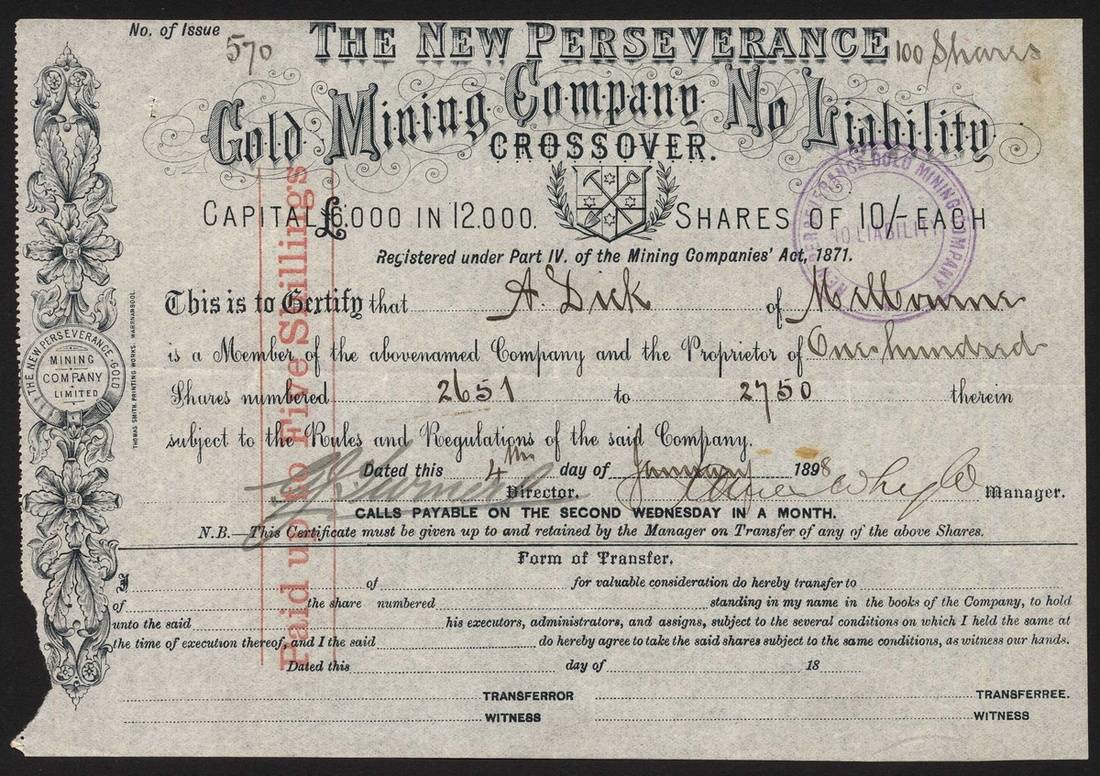 No. of Issue 570
THE NEW PERSEVERANCE 100 Shares
Gold Mining Company No Liability
CROSSOVER.
CAPITAL £6,000 IN 12,000. SHARES OF 10/- EACH
NEW PERSEVERANCE GOLD MINING COMPANY
NO LIABILITY
Registered under Part IV. of the Mining Companies' Act, 1871.
This is to Certify that A. Dick of Melbourne
is a Member of the abovenamed Company and the Proprietor of One hundred
Shares numbered 2651 to 2750 therein
subject to the Rules and Regulations of the said Company.
Dated this 4th day of January 1898
Director. Manager.
CALLS PAYABLE ON THE SECOND WEDNESDAY IN A MONTH.
N.B.—This Certificate must be given up to and retained by the Manager on Transfer of any of the above Shares.
Paid up to Five Shillings
THE NEW PERSEVERANCE GOLD
MINING
COMPANY
LIMITED
THOMAS SMITH, PRINTING WORKS, WARRNAMBOOL
Form of Transfer.
I of for valuable consideration do hereby transfer to
of the share numbered standing in my name in the books of the Company, to hold
unto the said his executors, administrators, and assigns, subject to the several conditions on which I held the same at
the time of execution thereof, and I the said do hereby agree to take the said shares subject to the same conditions, as witness our hands.
Dated this day of 18
TRANSFERROR TRANSFERREE.
WITNESS WITNESS